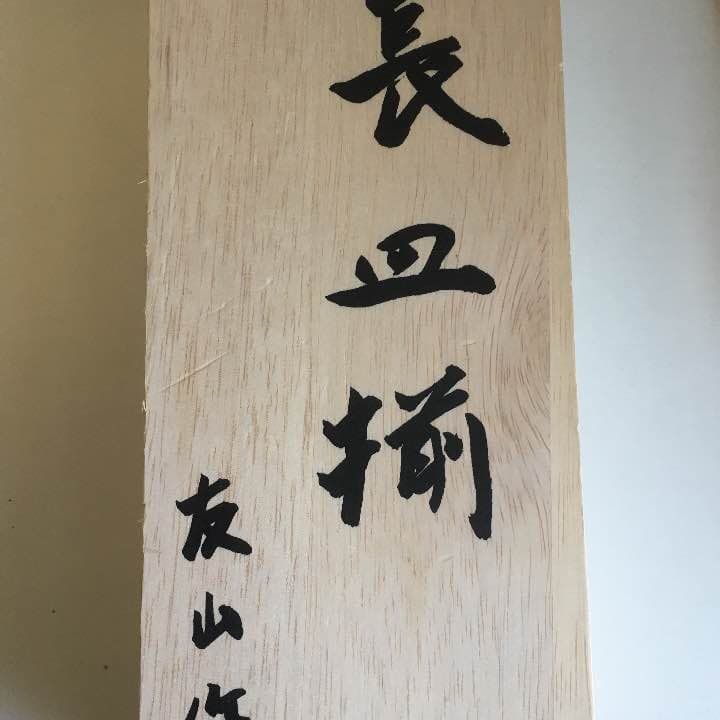 長皿揃
友山作